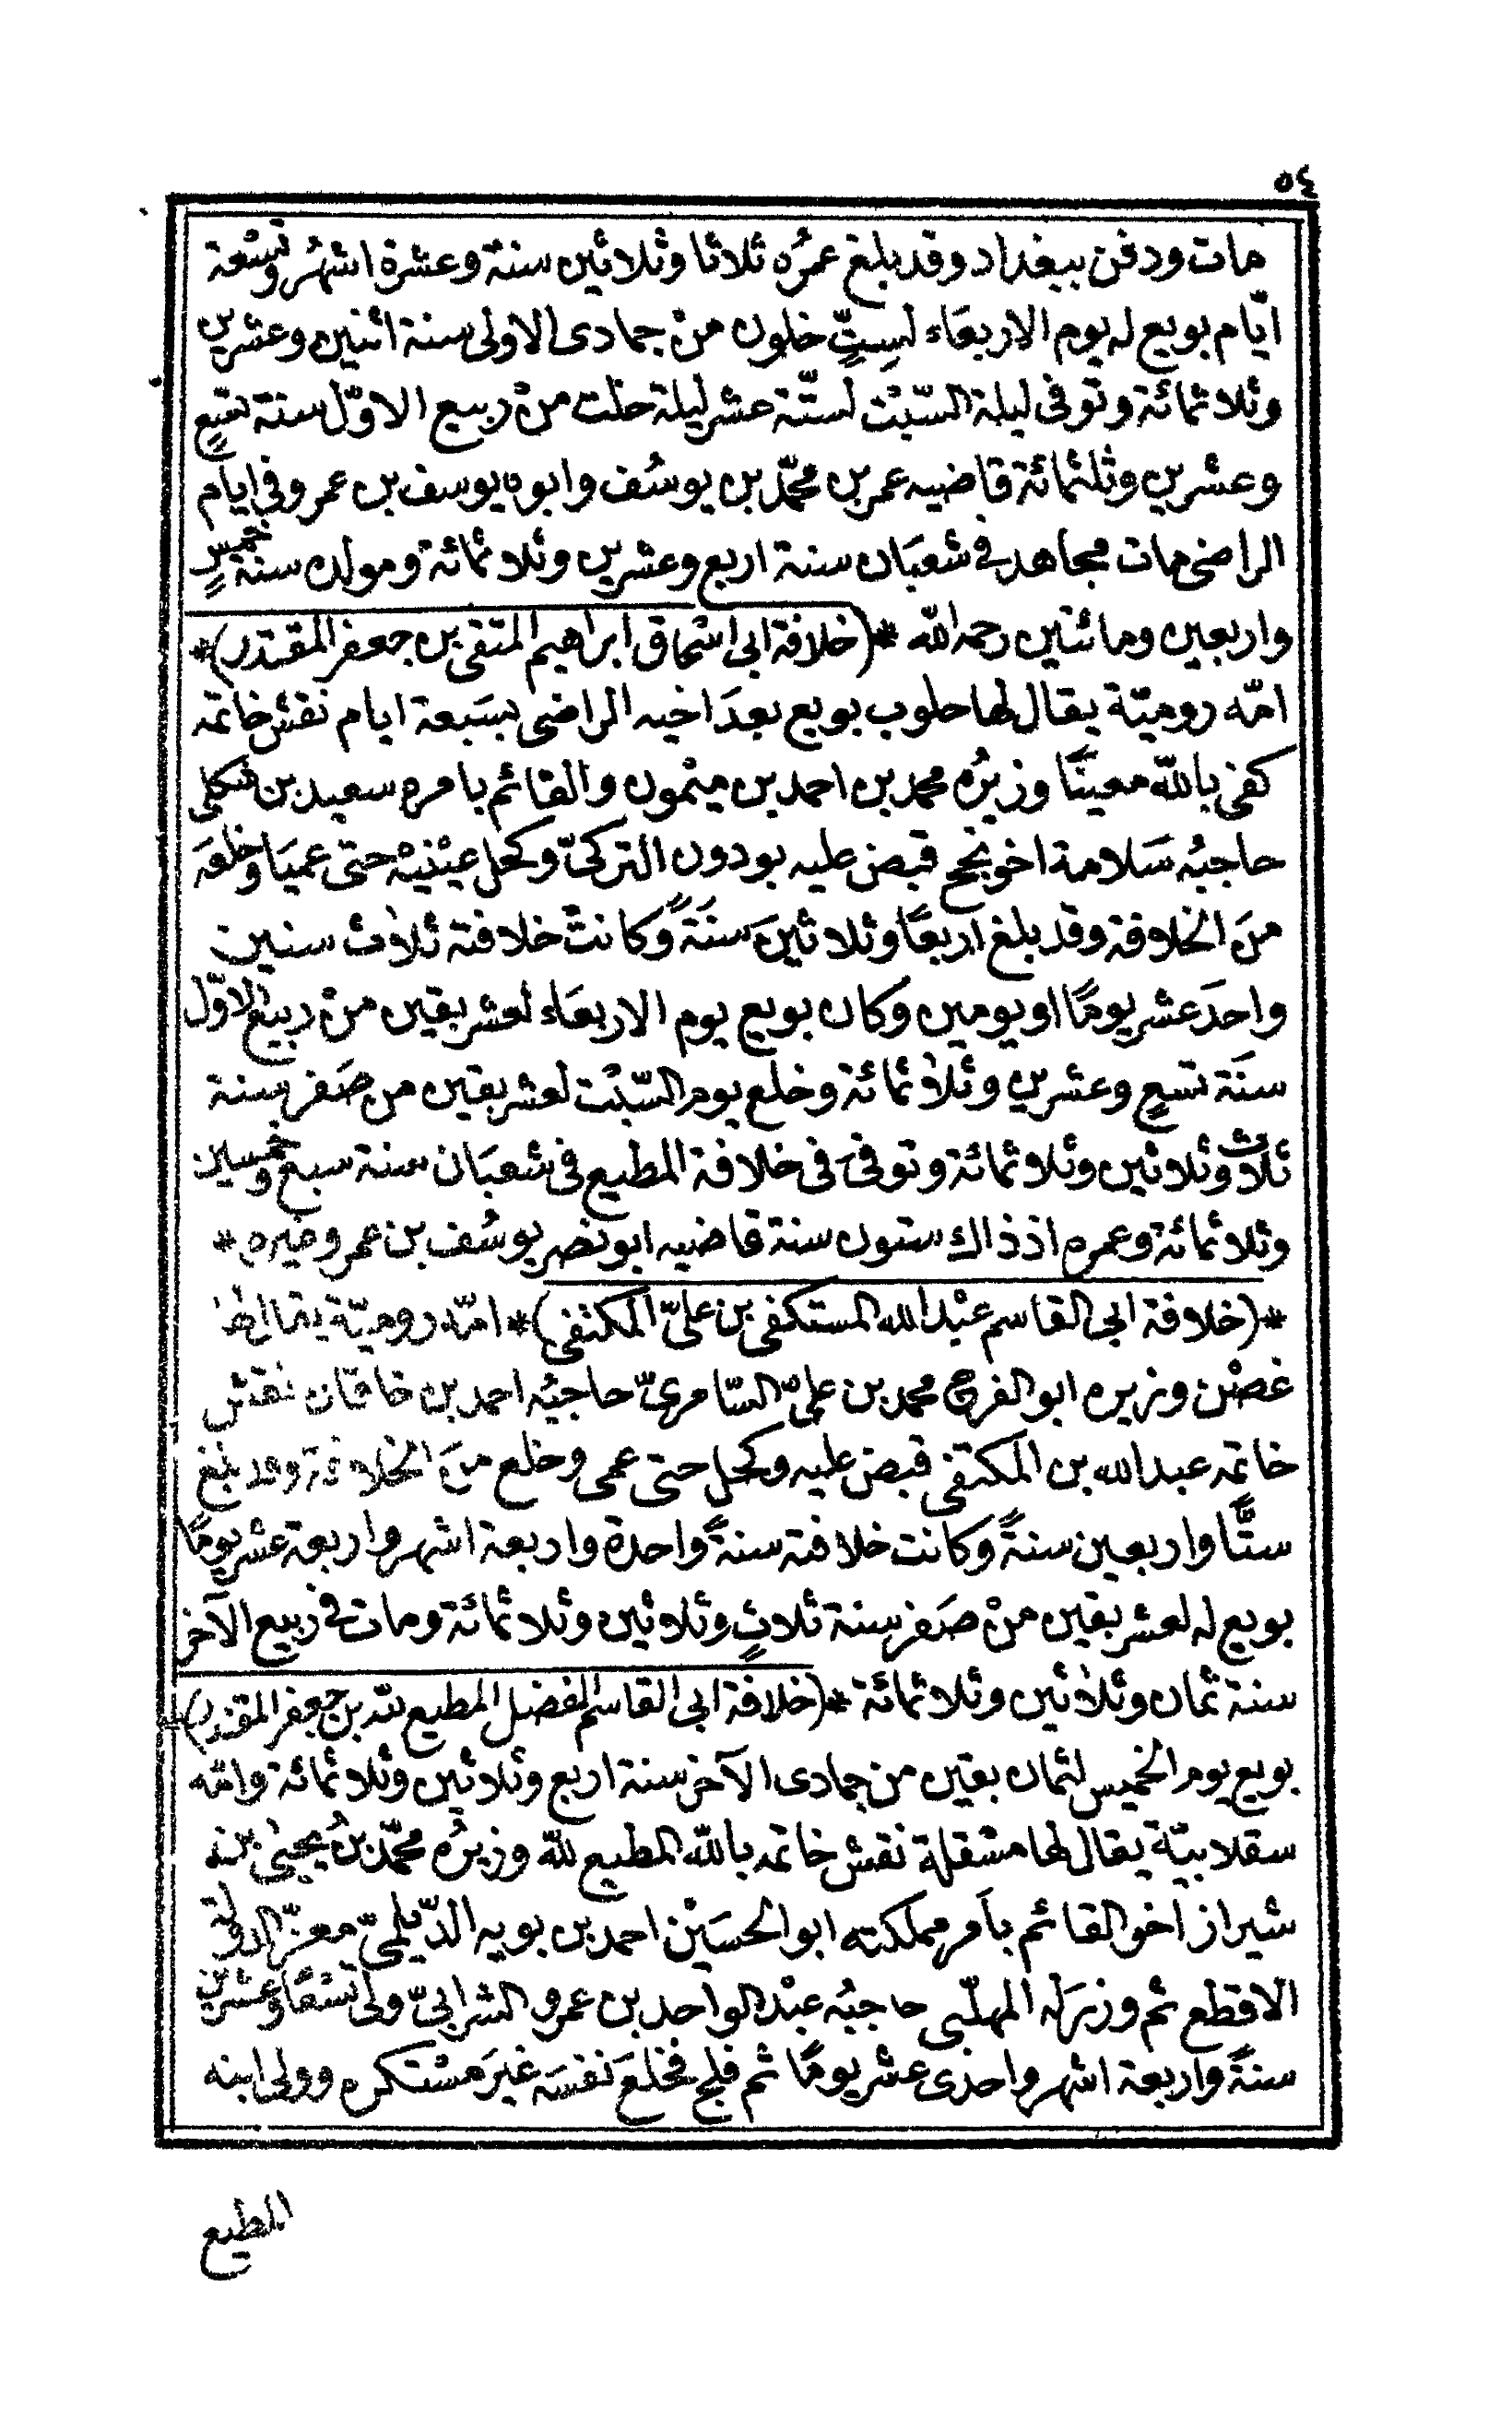 ٥٤
مات ودفن ببغداد وقد بلغ عمرُه ثلاثا وثلاثين سنة وعشرة اشهُر وتسْعة
ايّام بويع له يوم الاربعَاء لسِتٍّ خلون منْ جمادى الاولى سنة اثنين وعشرين
وثلاثمائة وتوفى ليلة السّبْت لستّة عشر ليلة خلت منْ ربيع الاوّل سنة تسعٍ
وعشرين وثلثمائة قاضيه عمر بن محمّد بن يوسُف وابوه يوسف بن عمر وفى ايام
الراضى مات مجاهد فى شعبَان سنة اربع وعشرين وثلاثمائة ومولده سنة خمسٍ
واربعين ومائتين رحمه الله * (خلافة ابى اسْحاق ابراهيم المتقى بن جعفر المقتدر) *
امّه روميّة يقال لها حلوب بويع بعدَ اخيه الراضى بسَبعة ايام نقش خاتمه
كفى بالله معينًا وزيرُه محمد بن احمد بن ميْمون والقائم بامره سعيد بن
حاجبُه سَلامة اخو نجح قبض عليه بودون التركىّ وكحل عيْنيْه حتى عميَا وخلعَه
منَ الخلافة وقد بلغ اربعًا وثلاثينَ سنَةً وكانتْ خلافته ثلاث سنين
واحدَ عشر يومًا او يومين وكان بويع يوم الاربعَاء لعشر بقين منْ ربيع الاوّل
سنَة تسعٍ وعشرين وثلاثمائة وخلع يوم السّبْت لعشر بقين من صَفر سنة
ثلاث وثلاثين وثلاثمائة وتوفىَ فى خلافة المطيع فى شعبَان سنة سبع وخمسين
وثلاثمائة وعمره اذ ذاك ستون سنة قاضيه ابو نصر يوسُف بن عمر وغيره *
* (خلافة ابى القاسم عبْد الله المستكفى بن علىّ المكتفى) * امّه روميّة يقال لها
غصْن وزيره ابو الفرج محمد بن علىّ السّامرىّ حاجبُه احمد بن خاقان نقش
خاتمه عبد الله بن المكتفى قبض عليه وكحل حتى عمى وخلع منَ الخلافة وقد بلغ
ستًّا واربعين سنةً وكانت خلافته سنةً واحدة واربعة اشهر واربعة عشر يومًا
بويع له لعشر بقين منْ صَفر سنة ثلاثٍ وثلاثين وثلاثمائة ومات فى ربيع الآخر
سنة ثمان وثلاثين وثلاثمائة * (خلافة ابى القاسم المفضل المطيع لله بن جعفر المقتدر) *
بويع يوم الخميس لثمان بقين من جمادى الآخر سنة اربع وثلاثين وثلاثمائة وامّه
سقلابيّة يقال لها مشقلة نقش خاتمه بالله المطيع لله وزيرُه محمّد بنُ يحيىٰ بن
شيراز اخو القائم بأمر مملكته ابو الحسَيْن احمد بن بويه الدّيلمىّ معزّ الدولة
الاقطع ثم وزرَ له المهلّبى حاجبُه عبْد الواحد بن عمرو الشرابىّ ولى تسْعًا وعشرين
سنةً واربعة اشهر واحدى عشر يومًا ثم فلج فخلعَ نفسَه غيرَ مسْتكره وولى ابنه
المطيع